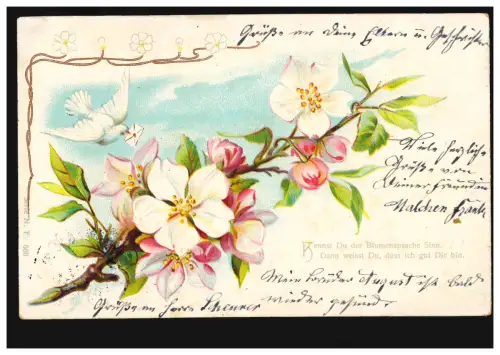 Grüße an deine Eltern u. Geschwister
Viele herzliche
Grüße von
Deiner Freundin
Malchen
Kennst Du der Blumensprache Sinn,
Dann weisst Du, dass ich gut Dir bin.
Mein Bruder August ist bald
wieder gesund.
Grüße an Herrn Scheurer